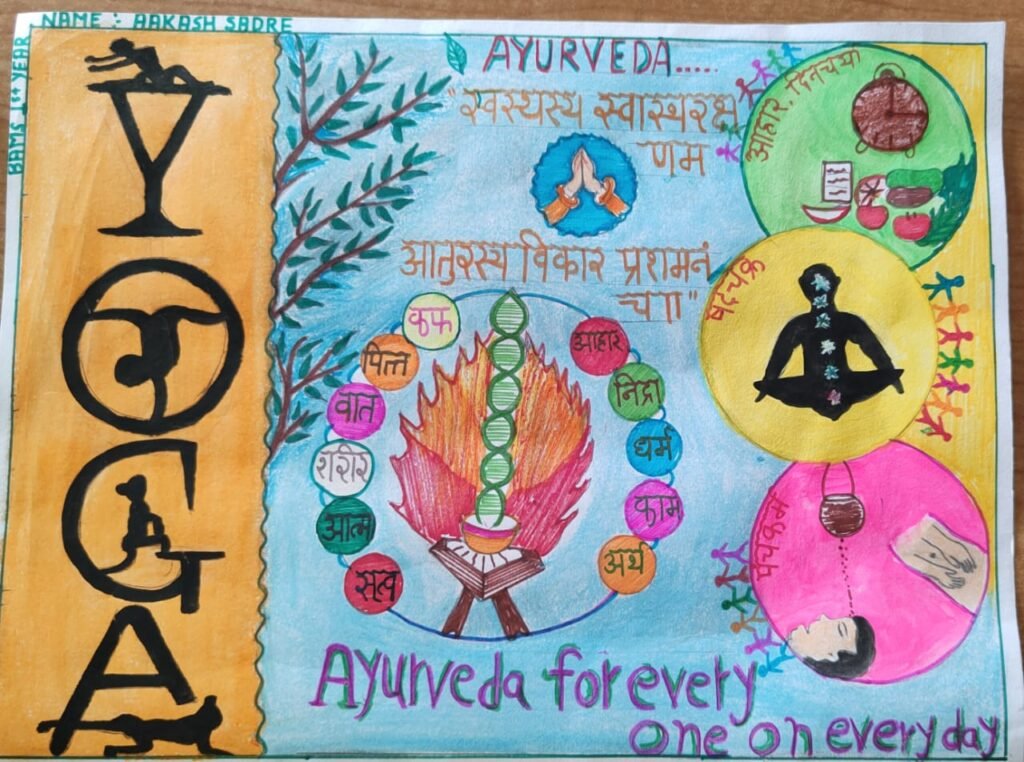 NAME : AAKASH SADRE
BAMS 1st YEAR
YOGA
AYURVEDA.....
"स्वस्थस्य स्वास्थरक्ष
णम
आतुरस्य विकार प्रशमनं
च॥"
कफ
पित्त
वात
शरीर
आत्म
सत्व
आहार
निद्रा
धर्म
काम
अर्थ
आहार, दिनचर्या
षटचक्र
पंचकर्म
Ayurveda for every
one on every day